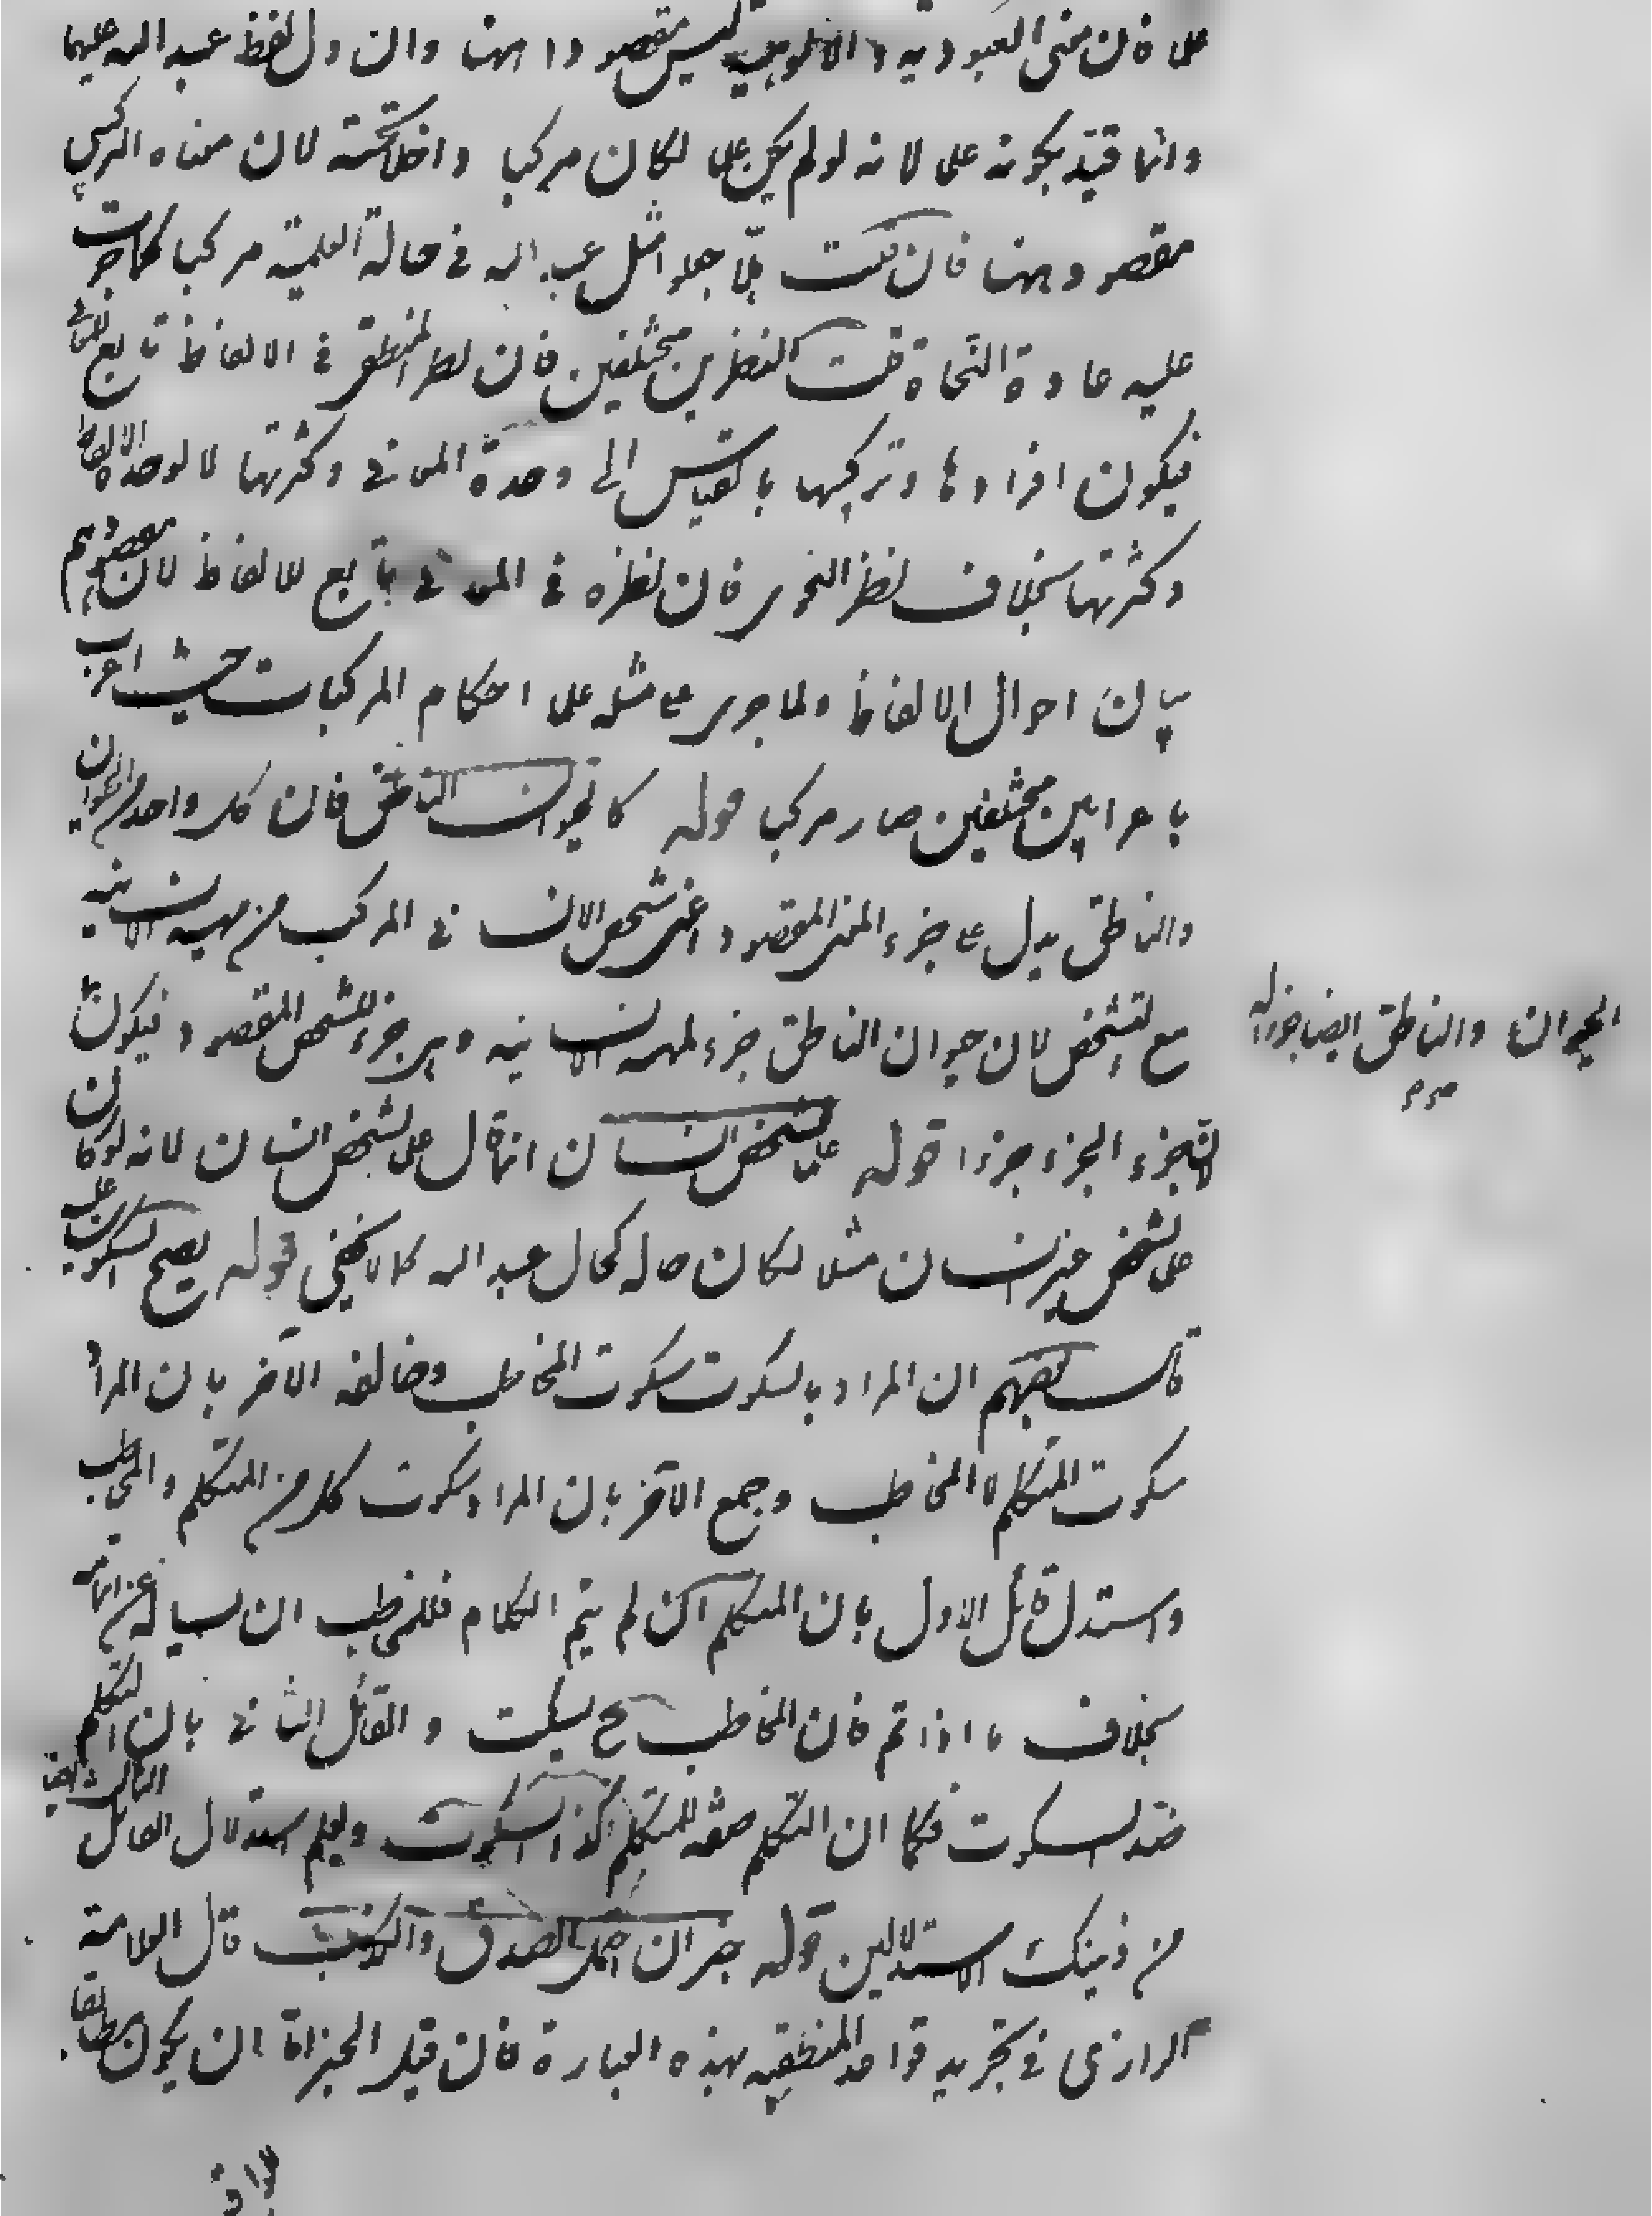 علما فان معنى العبودية والالوهية ليس مقصودا ههنا وان دل لفظ عبد الله عليهما
وانما قيد بكونه علما لانه لو لم يكن علما لكان مركبا داخلا تحته لان معناه التركيبي
مقصود ههنا فان قلت هلا جعلوا مثل عبد الله في حالة العلمية مركبا كما جرت
عليه عادة النحاة قلت النظرين مختلفين فان نظر المنطقي في الالفاظ تابع للمعاني
فيكون افرادها وتركيبها بالقياس الى وحدة المعاني وكثرتها لا لوحدة الالفاظ
وكثرتها بخلاف نظر النحوي فان نظره في المعاني تابع للالفاظ لان مقصودهم
بيان احوال الالفاظ ولما جرى على مثله على احكام المركبات حيث اعرب
باعرابين مختلفين صار مركبا قوله كالحيوان الناطق فان كل واحد من الحيوان
والناطق يدل على جزء المعنى المقصود اعني شخص الانسان المركب من مهية الانسانية
مع التشخص لان حيوان الناطق جزء لمهية الانسانية وهي جزء للشخص المقصود فيكون
الحيوان والناطق ايضا جزءا له
لان جزء الجزء جزء قوله علما لشخص انسان انما قال علما لشخص انسان لانه لو كان
علما لشخص غير انسان مثلا لكان حاله كحال عبد الله كما لا يخفى قوله يصح السكوت عليه
قال بعضهم ان المراد بالسكوت سكوت المخاطب وخالفه الآخر بان المراد
سكوت المتكلم لا المخاطب وجمع الآخر بان المراد سكوت كل من المتكلم والمخاطب
واستدل قائل الاول بان المتكلم اذا لم يتم الكلام فللمخاطب ان يسأله عن اتمامه
بخلاف ما اذا تم فان المخاطب ح يسكت والقائل الثاني بان التكلم
ضد السكوت فكما ان التكلم صفة للمتكلم كذا السكوت ويعلم استدلال القائل الثالث ايضا
من ذينك الاستدلالين قوله خبر ان احتمل الصدق والكذب قال العلامة
الرازي في تحرير قواعد المنطقية بهذه العبارة فان قيل الخبر اما ان يكون مطابقا
للواقع